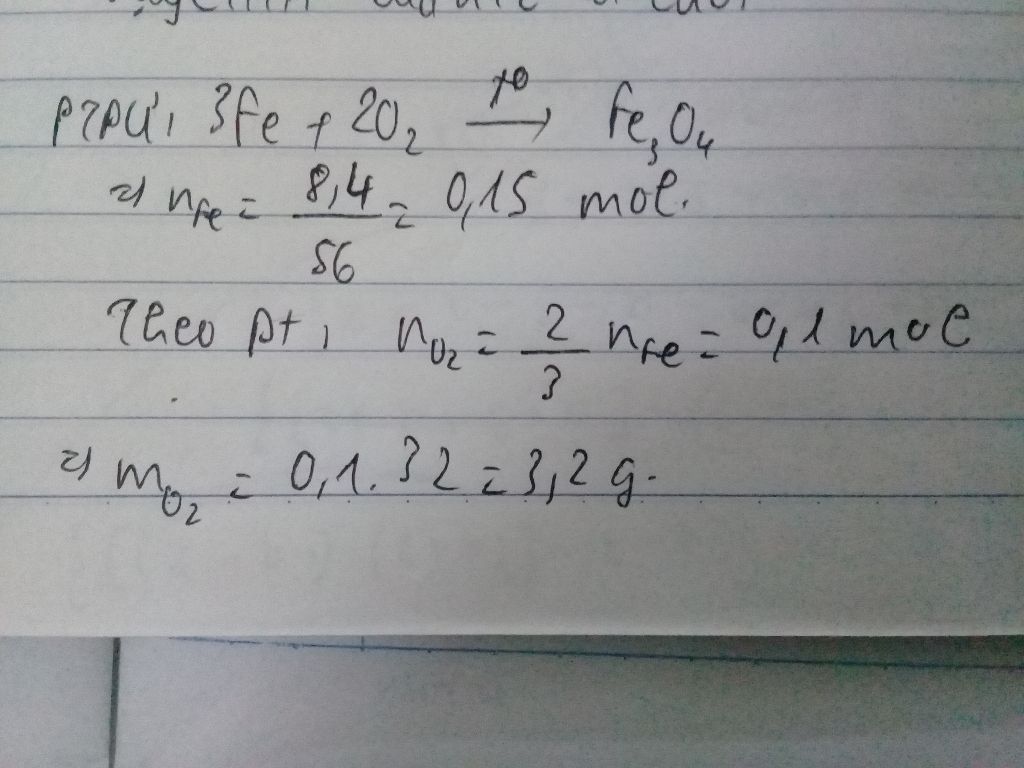 PTPƯ: 3Fe + 2O₂ –t⁰→ Fe₃O₄
=> nFe = 8,4/56 = 0,15 mol.
Theo pt: nO₂ = 2/3 nFe = 0,1 mol
=> mO₂ = 0,1.32 = 3,2 g.